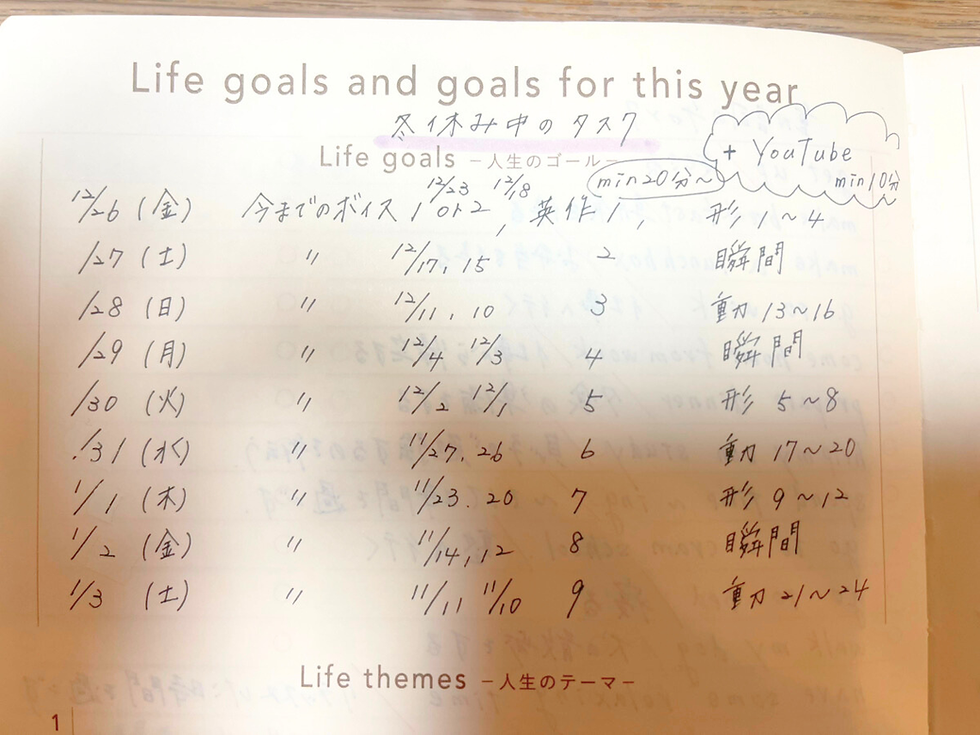 Life goals and goals for this year
冬休み中のタスク
+ YouTube
min10分
Life goals －人生のゴール－
min20分～
12/23 12/18
12/26 (金) 今までのボイス 1 or 2, 英作 1, 形 1～4
/27 (土) 〃 12/17, 15 2 瞬間
/28 (日) 〃 12/11, 10 3 動 13～16
/29 (月) 〃 12/4 12/3 4 瞬間
/30 (火) 〃 12/2 12/1 5 形 5～8
/31 (水) 〃 11/27, 26 6 動 17～20
1/1 (木) 〃 11/23. 20 7 形 9～12
1/2 (金) 〃 11/14, 12 8 瞬間
1/3 (土) 〃 11/11 11/10 9 動 21～24
Life themes －人生のテーマ－
1